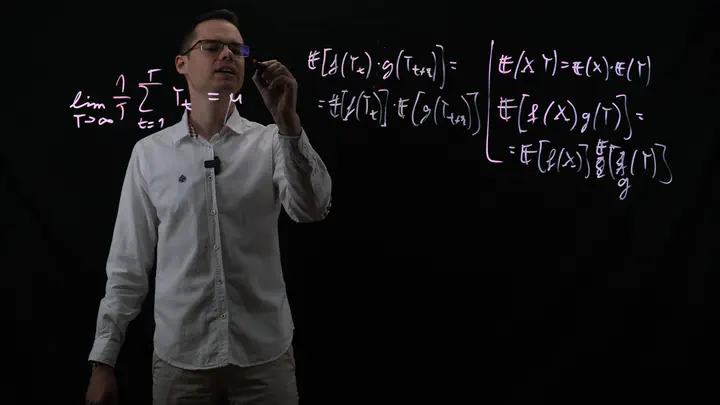 lim T→∞ 1/T ∑ t=1 T Y_t = μ
E[f(Y_t)·g(Y_{t+q})] =
= E[f(Y_t)]·E[g(Y_{t+q})]
E(X Y) = E(X)·E(Y)
E[f(X)g(Y)] =
= E[f(X)] E[g(Y)]
g